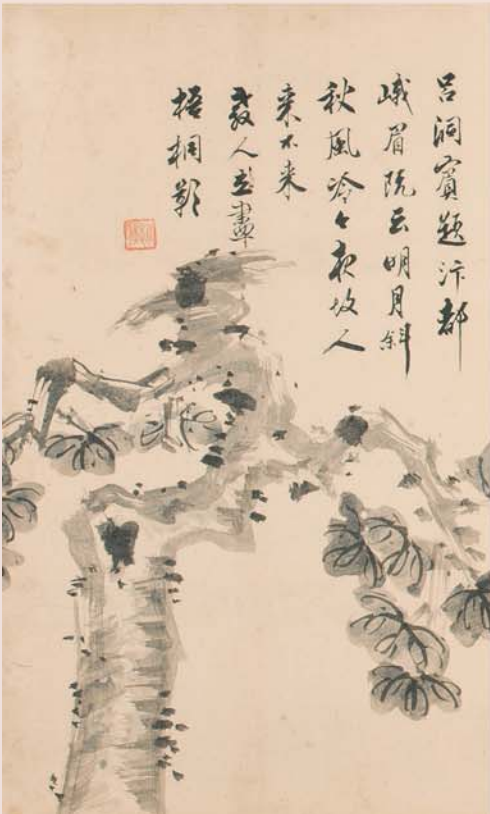 呂洞賓題汴都
峨眉院云明月斜
秋風冷今夜故人
来不来
教人立盡
梧桐影